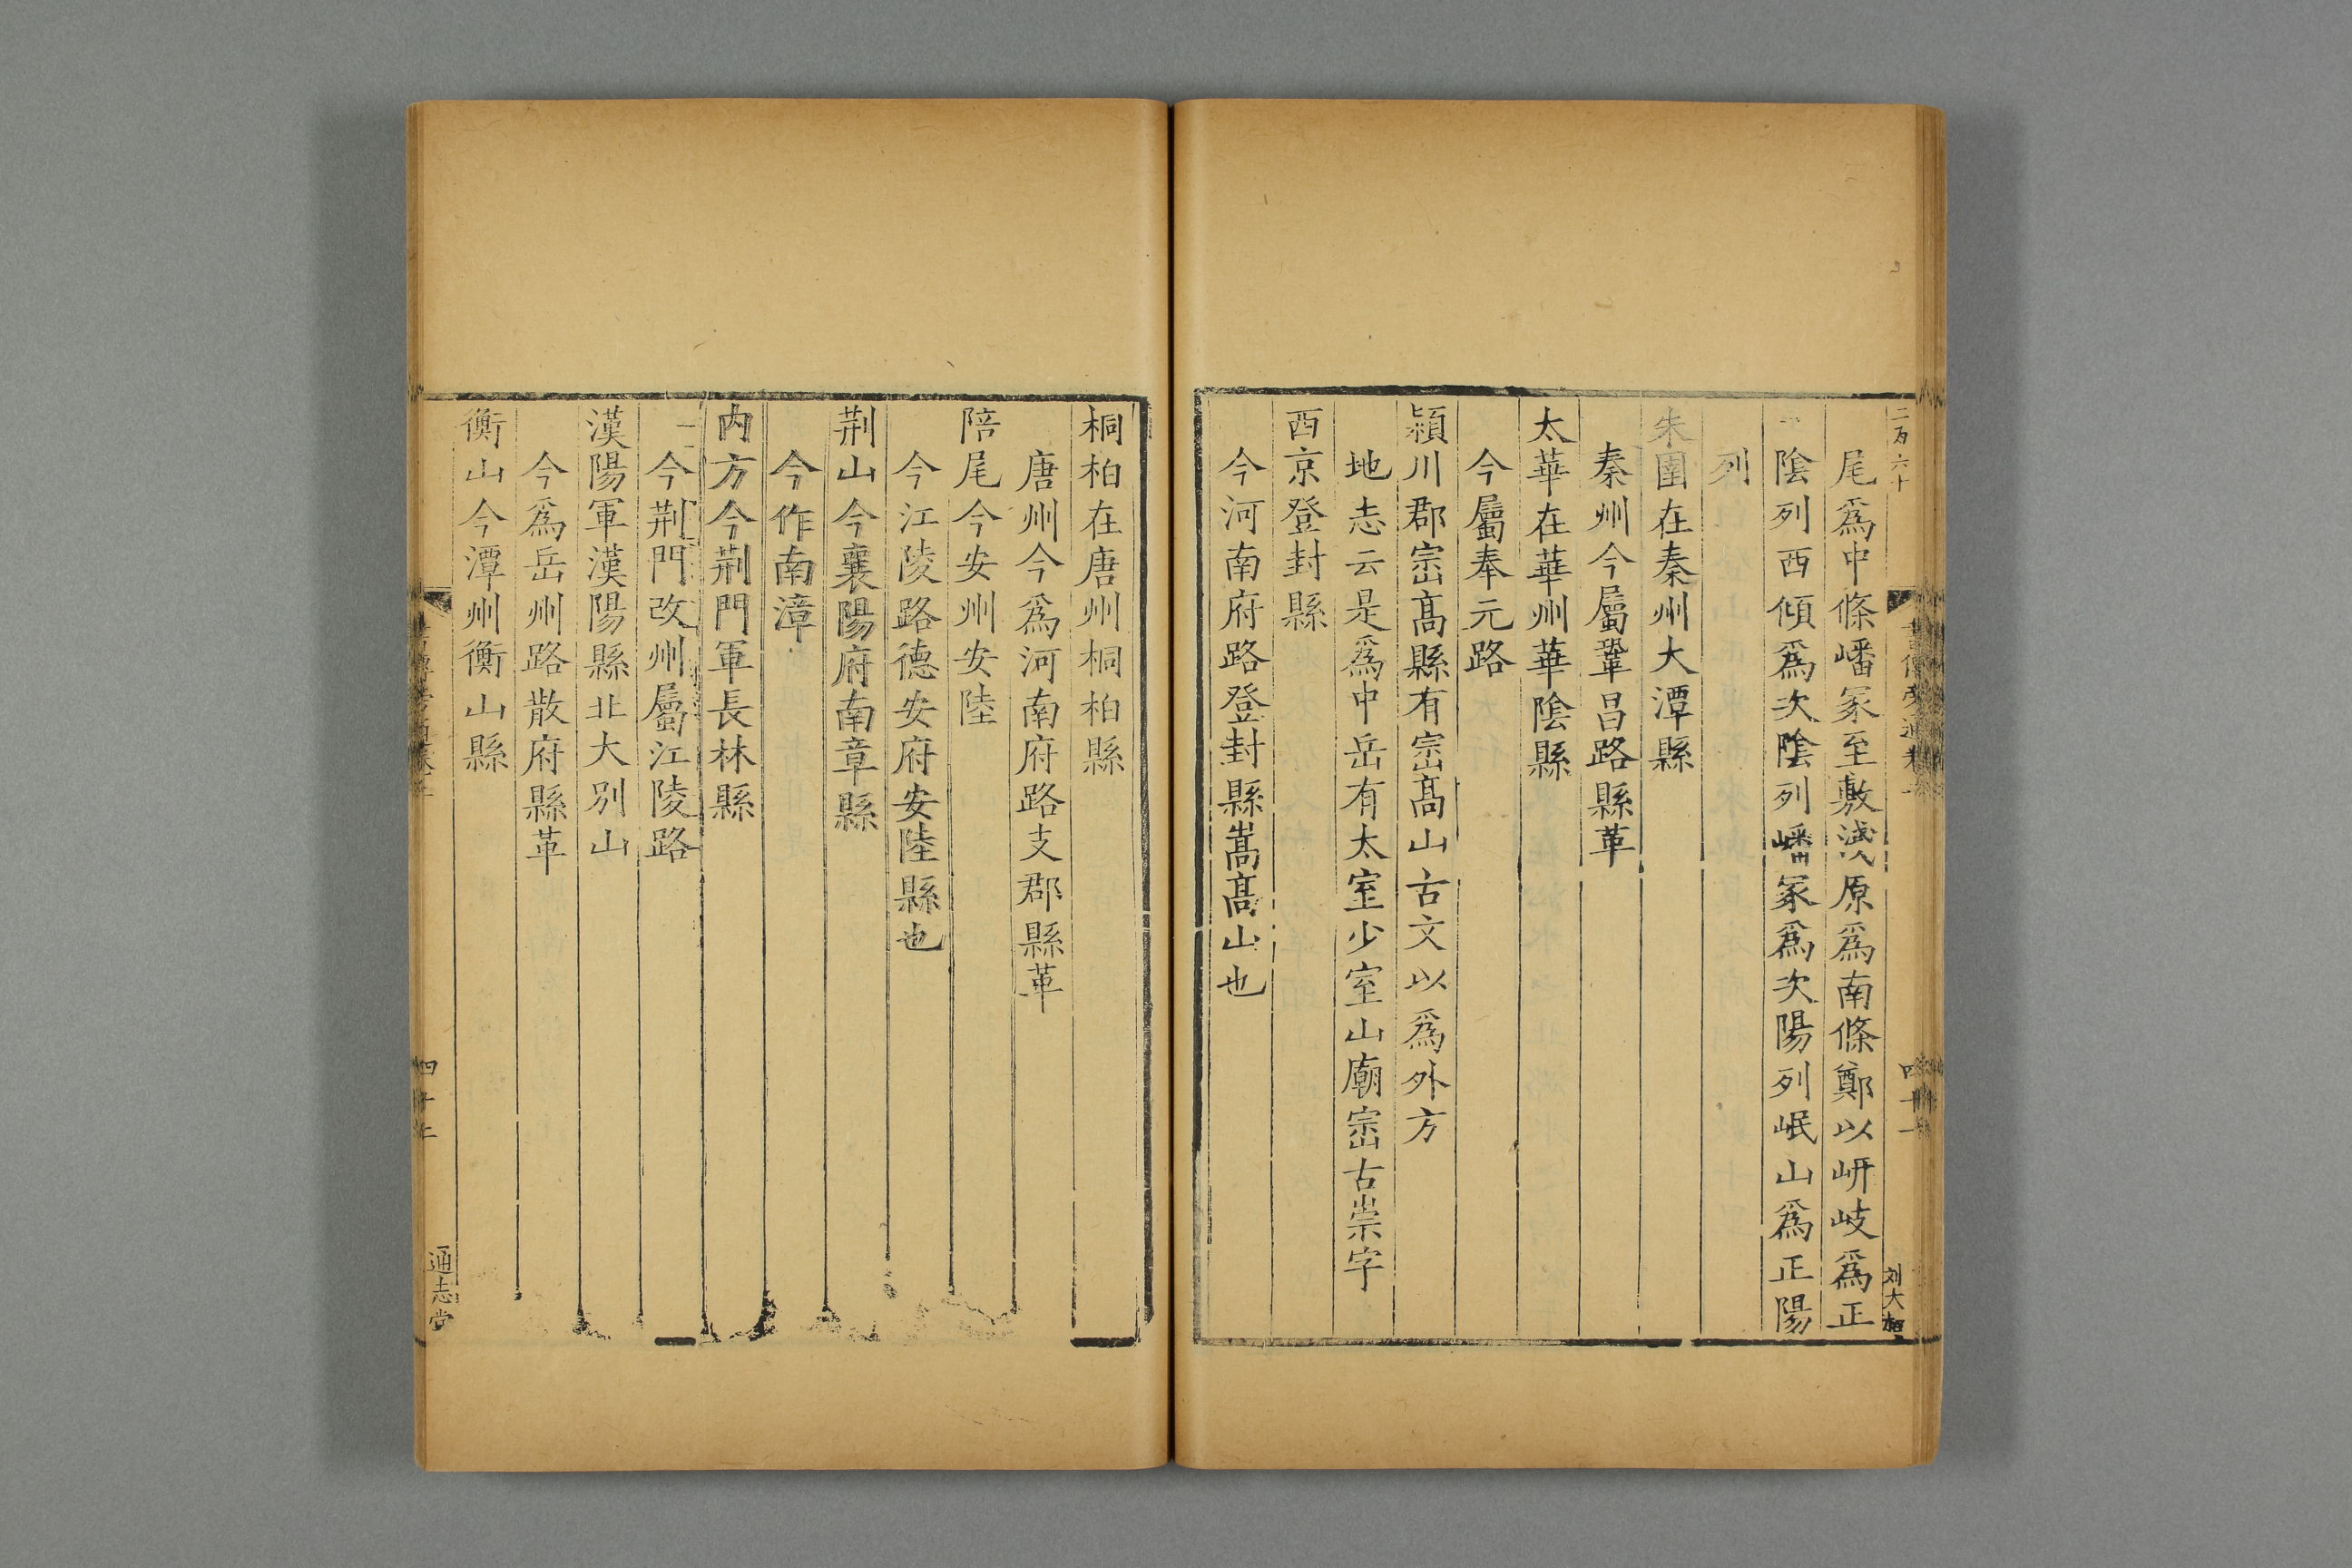 二百六十
尾爲中條嶓冢至敷淺原爲南條鄭以岍岐爲正
陰列西傾爲次陰列嶓冢爲次陽列岷山爲正陽
列
朱圉在秦州大潭縣
秦州今屬鞏昌路縣革
太華在華州華陰縣
今屬奉元路
潁川郡崈高縣有崈高山古文以爲外方
地志云是爲中岳有太室少室山廟崈古崇字
西京登封縣
今河南府路登封縣嵩高山也
桐柏在唐州桐柏縣
唐州今爲河南府路支郡縣革
陪尾今安州安陸
今江陵路德安府安陸縣也
荆山今襄陽府南章縣
今作南漳
内方今荆門軍長林縣
今荆門改州屬江陵路
漢陽軍漢陽縣北大別山
今爲岳州路散府縣革
衡山今潭州衡山縣
通志堂